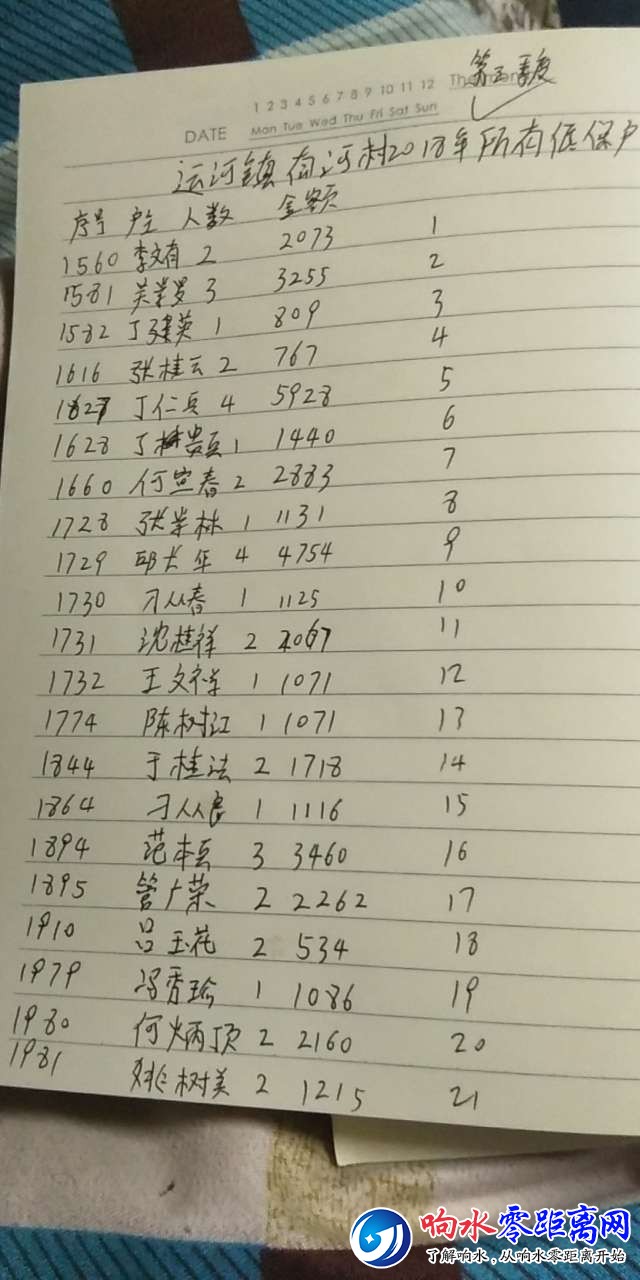 第三季度
1 2 3 4 5 6 7 8 9 10 11 12
DATE Mon Tue Wed Thu Fri Sat Sun
运河镇有河村2018年所有低保户
序号 户主 人数 金额
1560 李文有 2 2073 1
1581 3 3255 2
1582 丁建英 1 809 3
1616 张桂云 2 767 4
1627 丁仁兵 4 5928 5
1628 1 1440 6
1660 何宜春 2 2883 7
1728 张学林 1 1131 8
1729 邱长华 4 4754 9
1730 刁从春 1 1125 10
1731 沈桂祥 2 2067 11
1732 王文祥 1 1071 12
1774 陈树江 1 1071 13
1844 于桂法 2 1718 14
1864 刁从良 1 1116 15
1894 范本兵 3 3460 16
1895 管广荣 2 2262 17
1910 吕玉花 2 534 18
1979 冯秀珍 1 1086 19
1980 何炳顶 2 2160 20
1981 姚树美 2 1215 21
响水零距离网
了解响水，从响水零距离开始